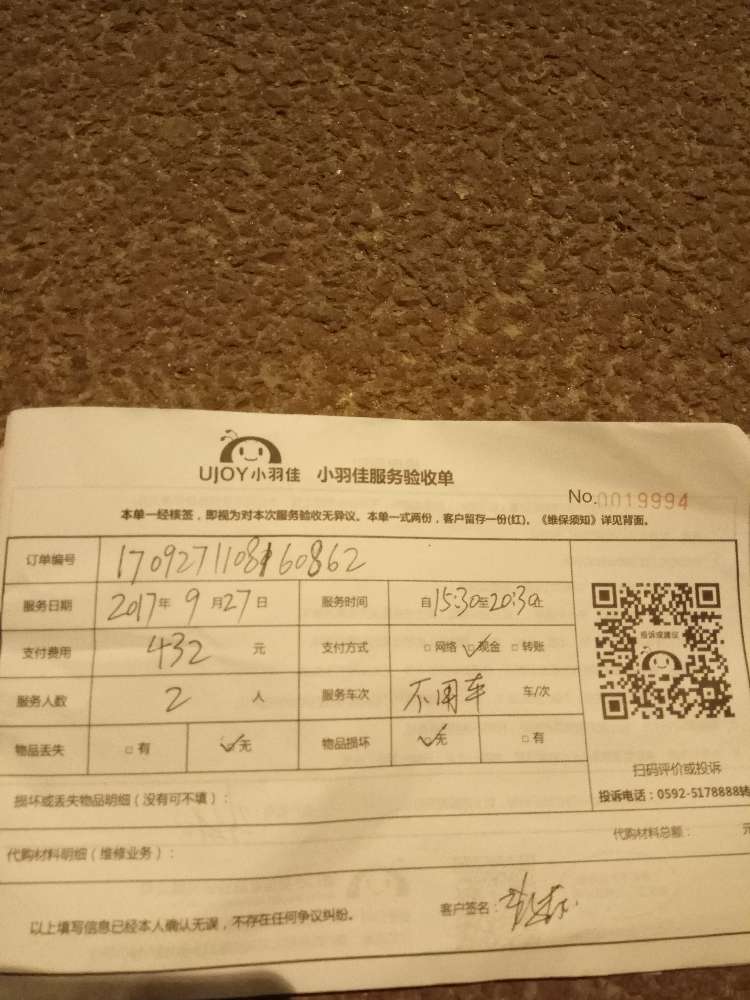 UJOY小羽佳 小羽佳服务验收单
No.0019994
本单一经核签，即视为对本次服务验收无异议。本单一式两份，客户留存一份(红)。《维保须知》详见背面。
订单编号 1709271108160862
服务日期 2017年9月27日 服务时间 自15:30至20:30止
投诉或建议
支付费用 432 元 支付方式 □网络 ☑现金 □转账
服务人数 2 人 服务车次 不用车 车/次
物品丢失 □有 ☑无 物品损坏 ☑无 □有
扫码评价或投诉
损坏或丢失物品明细（没有可不填）：
投诉电话：0592-5178888转
代购材料明细（维修业务）： 代购材料总额： 元
以上填写信息已经本人确认无误，不存在任何争议纠纷。 客户签名：